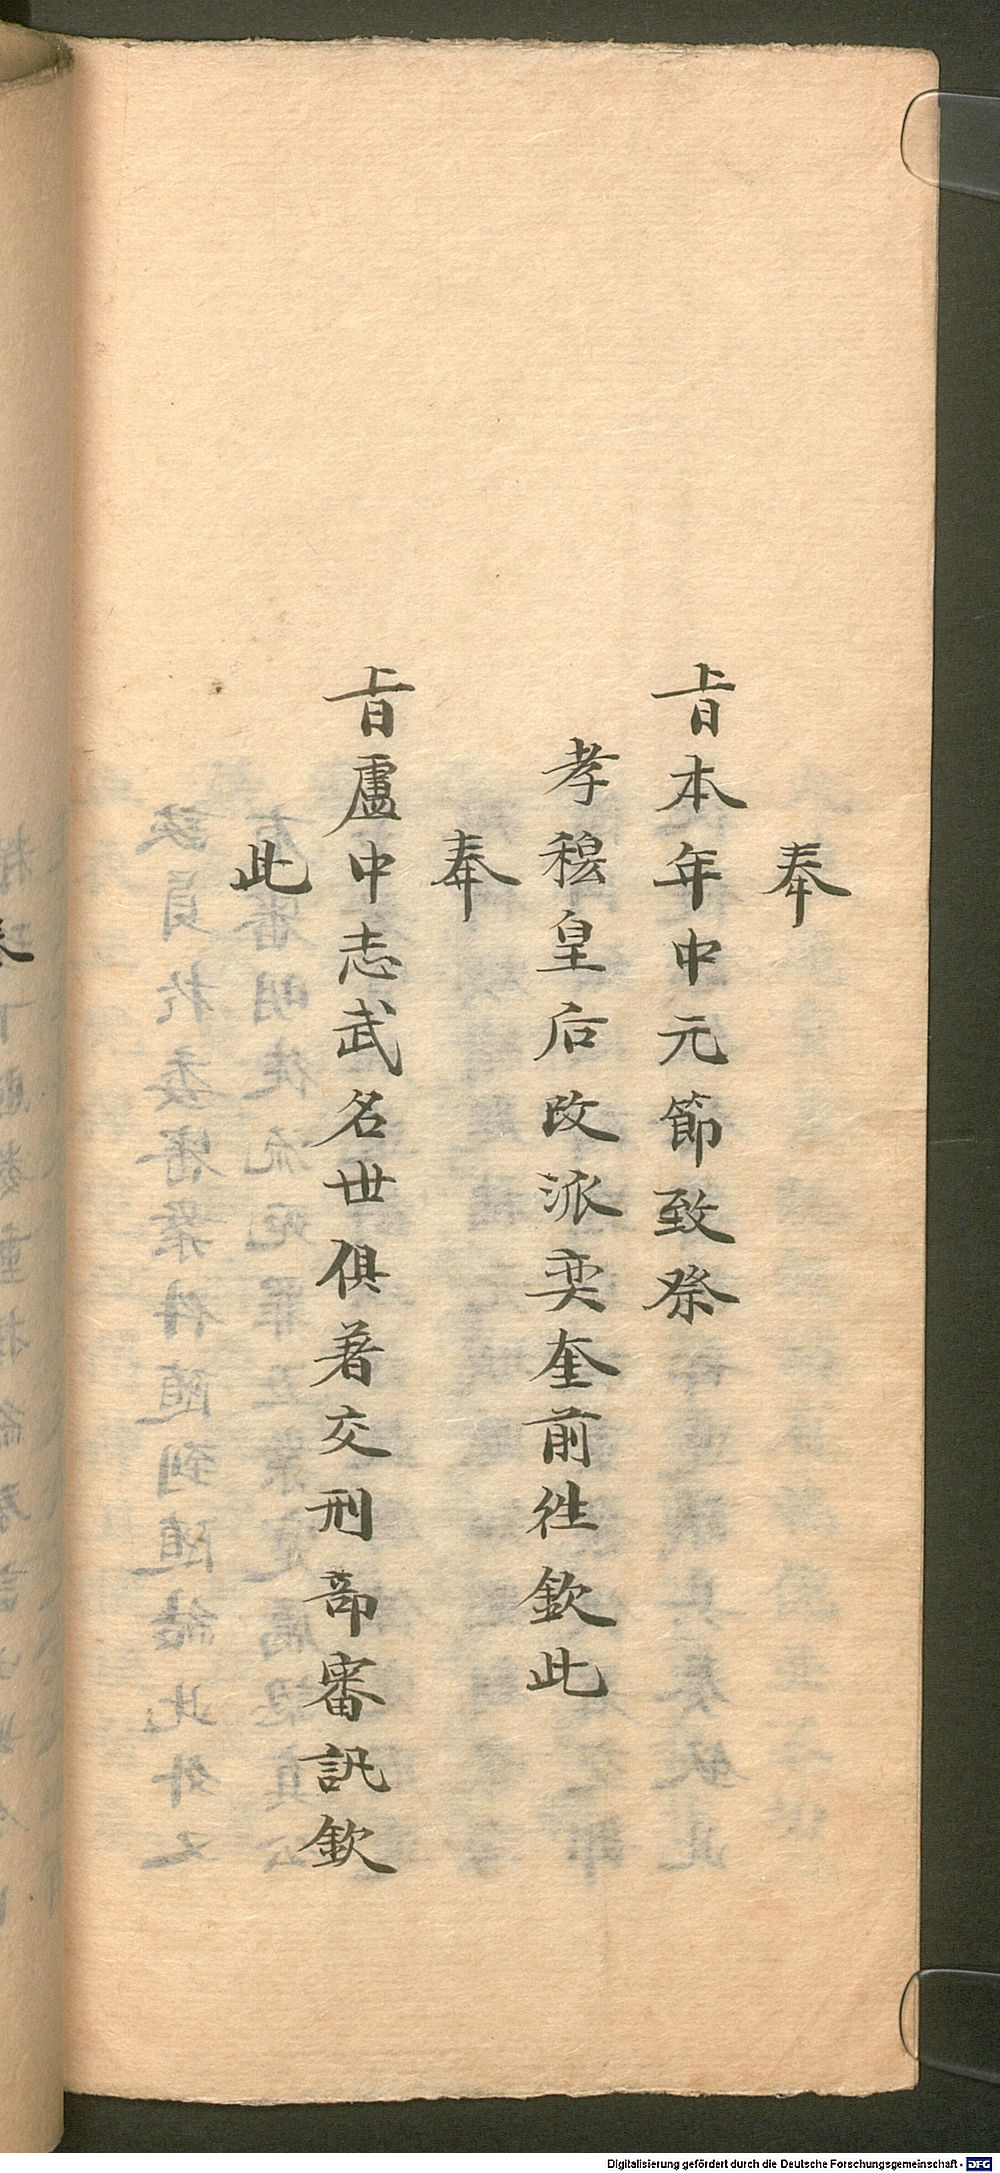 奉
旨本年中元節致祭
孝穆皇后改派奕奎前往欽此
奉
旨盧中志武名世俱著交刑部審訊欽
此
Digitalisierung gefördert durch die Deutsche Forschungsgemeinschaft - DFG